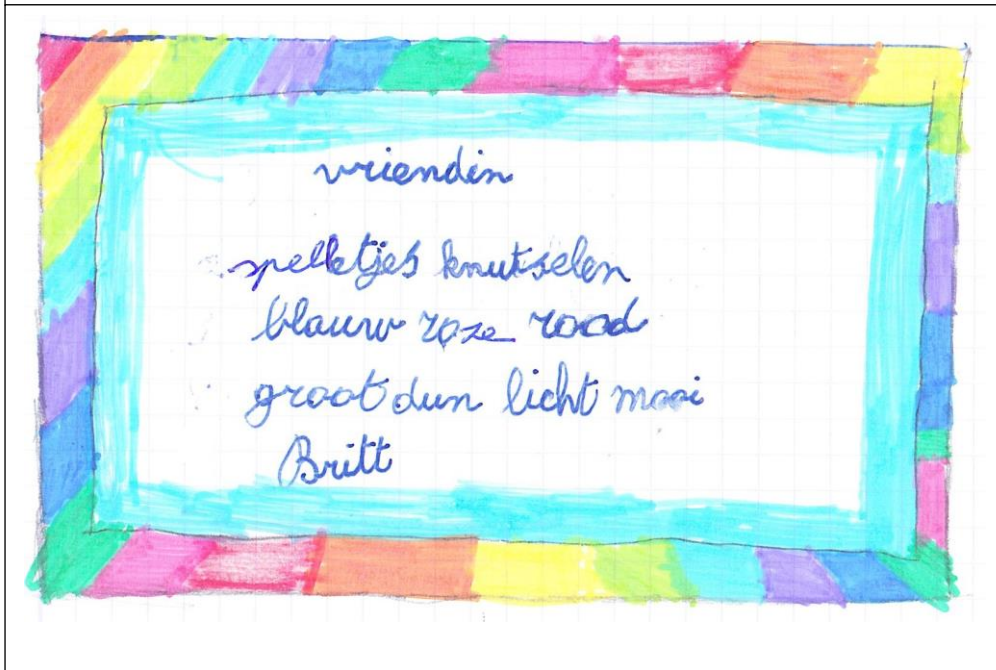 vriendin
spelletjes knutselen
blauw roze rood
groot dun licht mooi
Britt